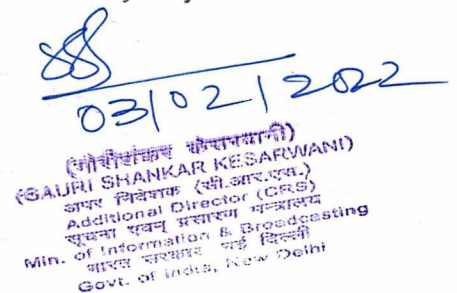 03/02/2022
(गौरीशंकर केसरवानी)
(GAURI SHANKAR KESARWANI)
अपर निदेशक (सी.आर.एस.)
Additional Director (CRS)
सूचना एवम् प्रसारण मन्त्रालय
Min. of Information & Broadcasting
भारत सरकार नई दिल्ली
Govt. of India, New Delhi